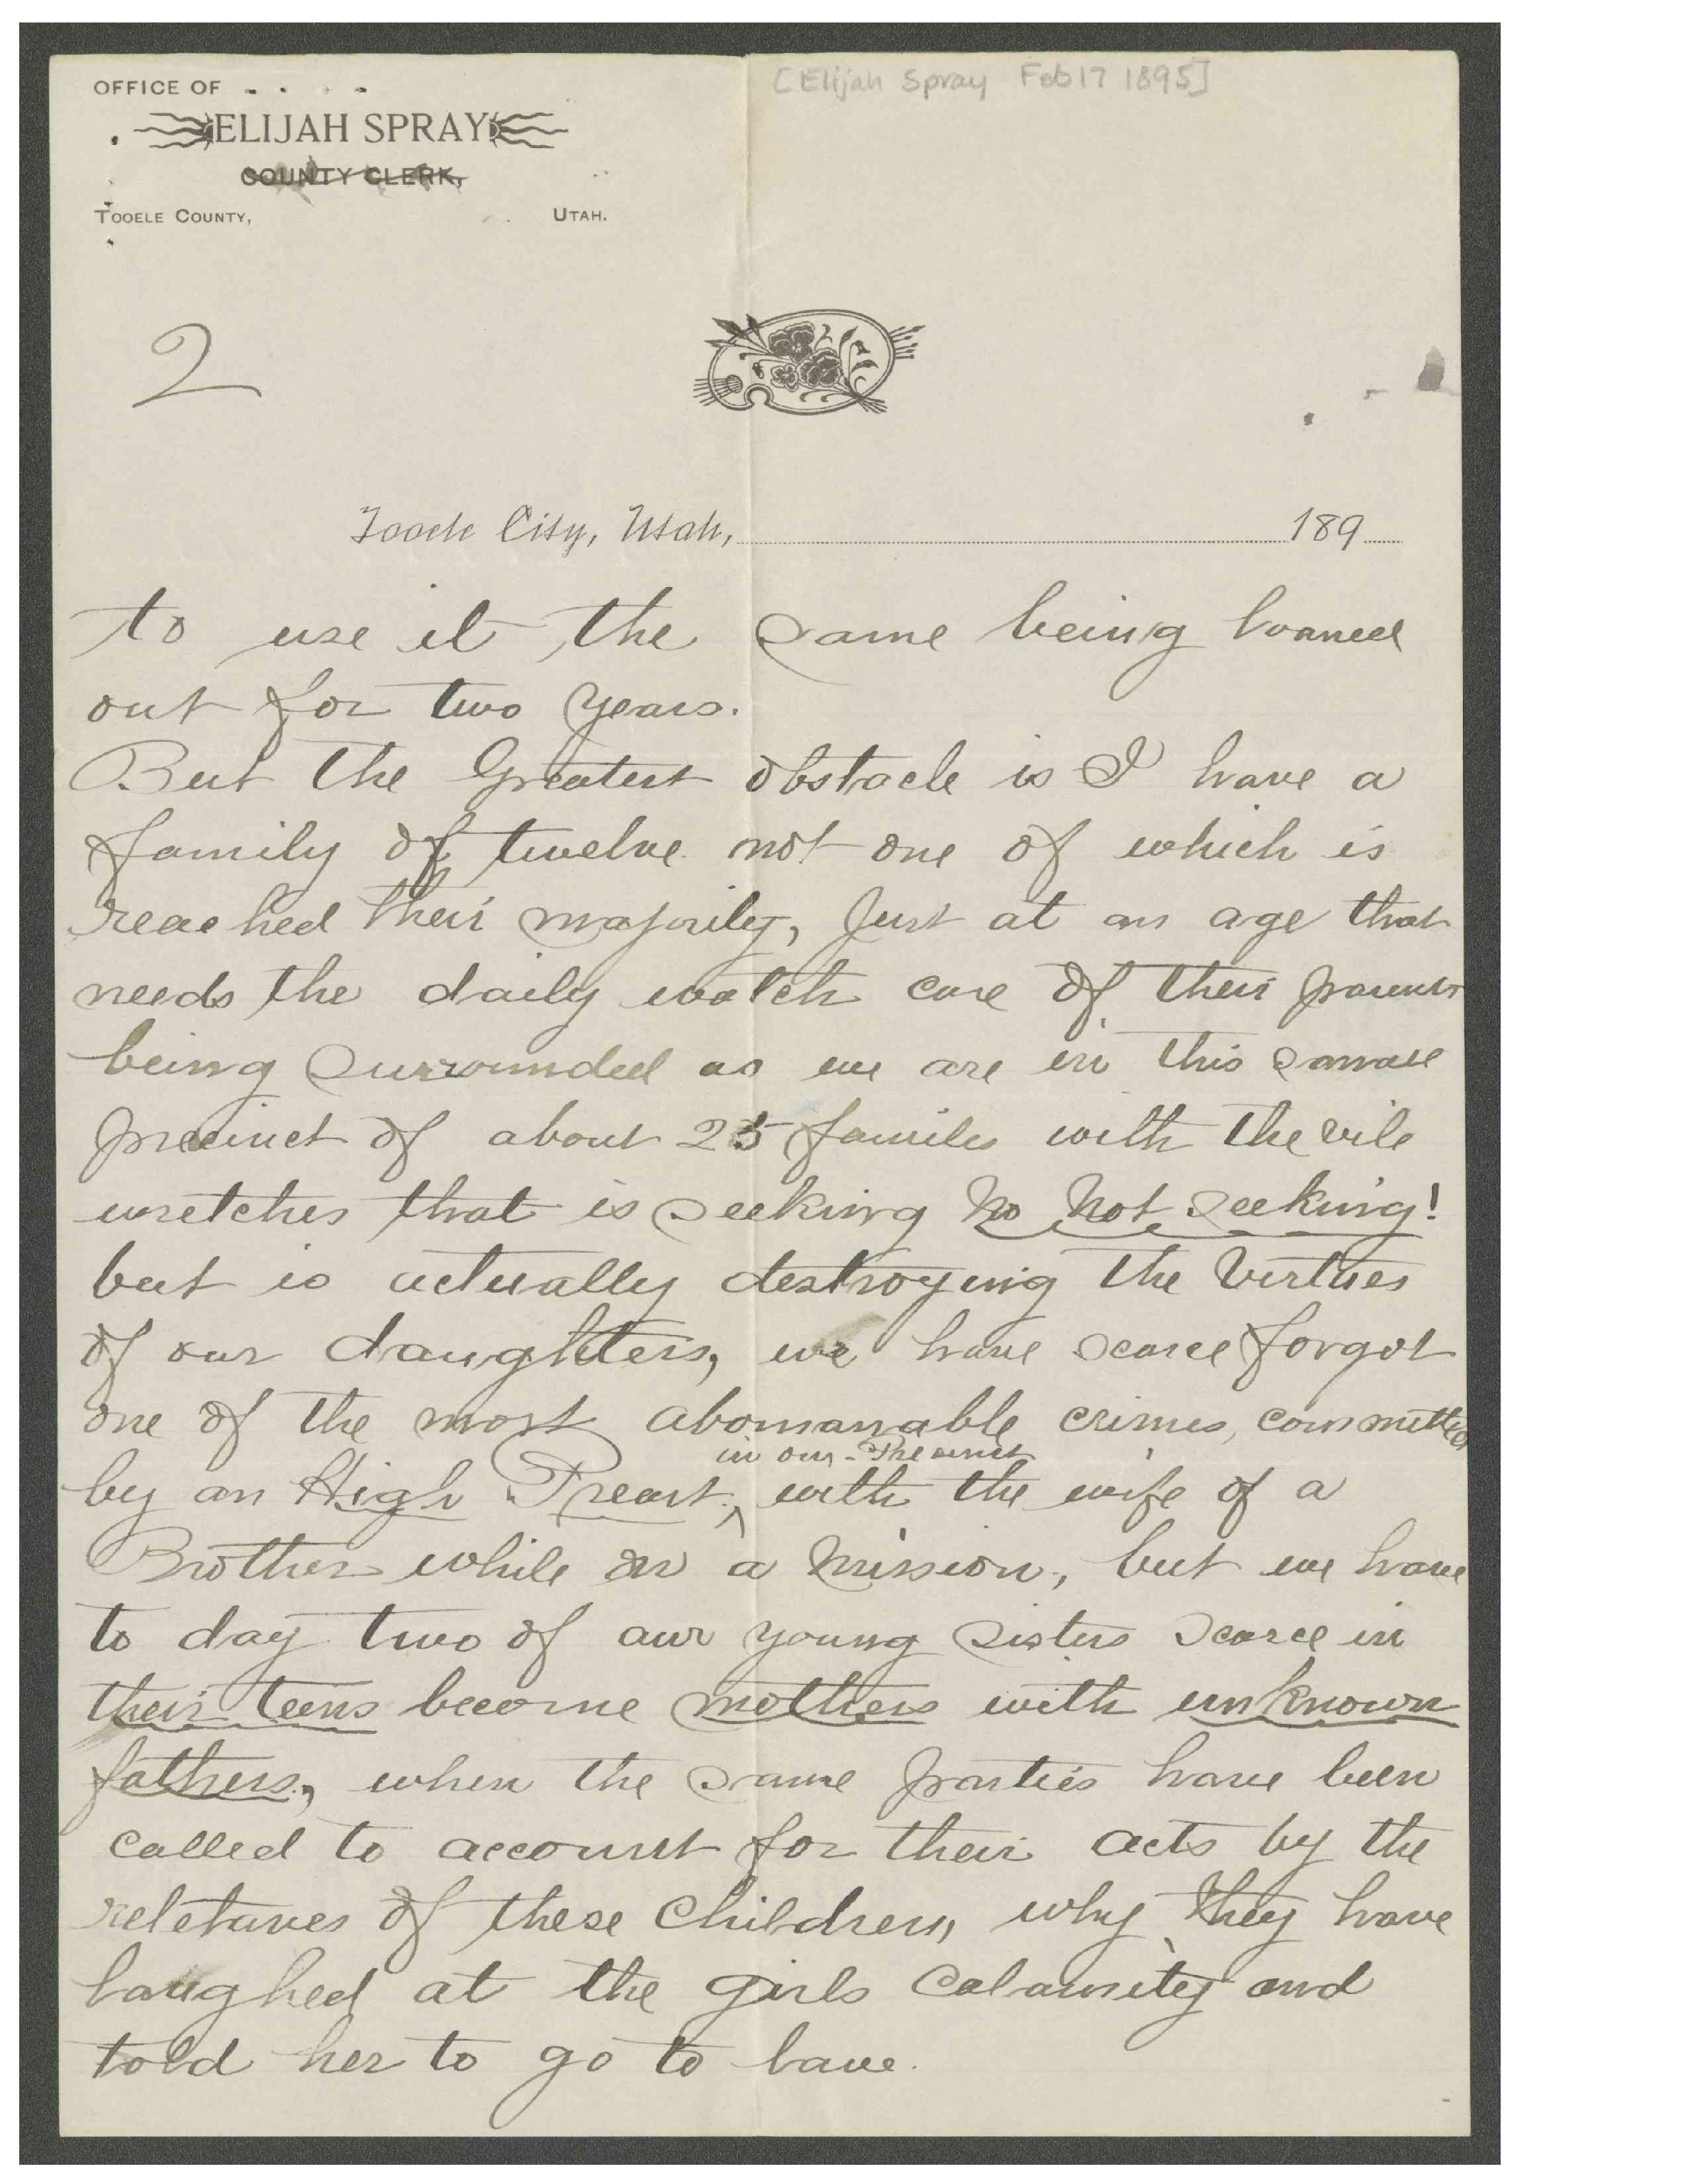 [Elijah Spray Feb 17 1895]
OFFICE OF
ELIJAH SPRAY
COUNTY CLERK,
TOOELE COUNTY, UTAH.
2
Tooele City, Utah, 189
to use it the same being loaned
out for two years.
But the Greatest obstacle is I have a
family of twelve not one of which is
reached their majority, Just at an age that
needs the daily watch care of their parents
being surrounded as we are in this small
precinct of about 25 families with the vile
wretches that is seeking No Not seeking!
but is actually destroying the Virtues
of our daughters, we have scarce forgot
one of the most abomanable crimes, committed
in our Precinct
by an High Preast, with the wife of a
Brother while on a mission, but we have
to day two of our young sisters scarce in
their teens become mothers with unknown
fathers, when the same parties have been
called to account for their acts by the
reletaves of these Children, why they have
laughed at the girls Calamity and
told her to go to law.